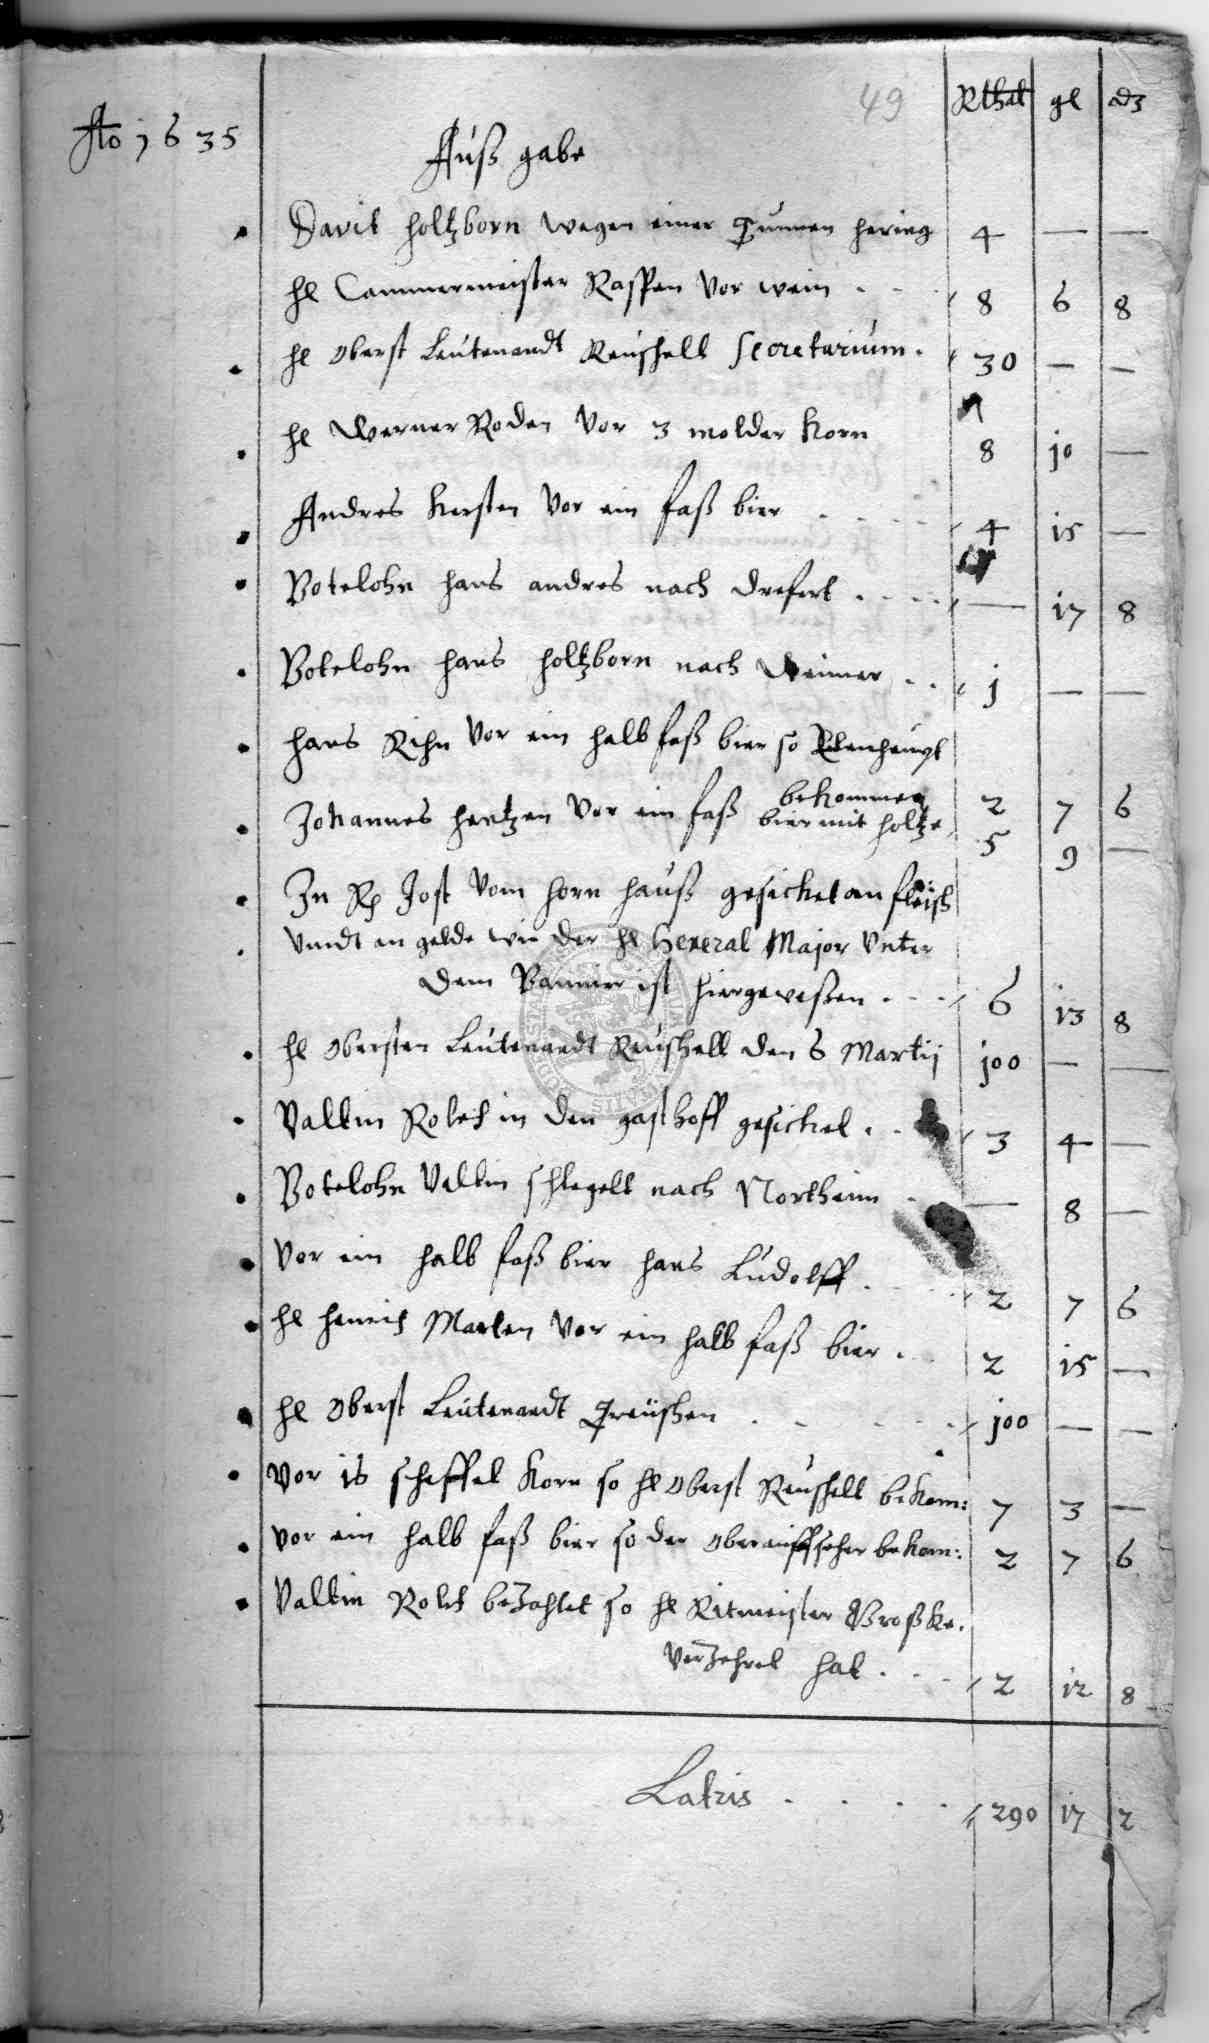 49
Rthal gl d3
Ao 1635
Außgabe
Davit Holtzborn wegen einer Tunnen hering 4 — —
H Cammermeister Raspen vor wein 8 6 8
H Oberst Leutenandt Reushell Secretarium 30 — —
H Werner Roden vor 3 molder Korn 8 10 —
Andres Kersten vor ein faß bier 4 15 —
Botelohn hans andres nach — 17 8
Botelohn hans holtzborn nach Weimer 1 — —
hans Rihn vor ein halb faß bier so
bekommen 2 7 6
Johannes hentzen vor ein faß bier mit holtze 5 9 —
In Jost vom horn hauß gesicket an fleisch
Vndt an gelde wie der H General Major Vnter
dem Bannier ist hiergeweßen 6 13 8
H Obersten Leutenandt Reushell den 6 Martij 100 — —
Valtin Roleb in den gasthoff gesicket 3 4 —
Botelohn Valtin schlegell nach Northeim — 8 —
Vor ein halb faß bier hans Ludolff 2 7 6
H Henrich Marten vor ein halb faß bier 2 15 —
H Oberst Leutenandt 100 — —
Vor 16 scheffel Korn so H Oberst Reushell bekom: 7 3 —
Vor ein halb faß bier so der Oberauffseher bekom: 2 7 6
Valtin Roleb bezahlet so H Ritmeister Großke.
verzehret hat 2 12 8
Latris 290 17 2